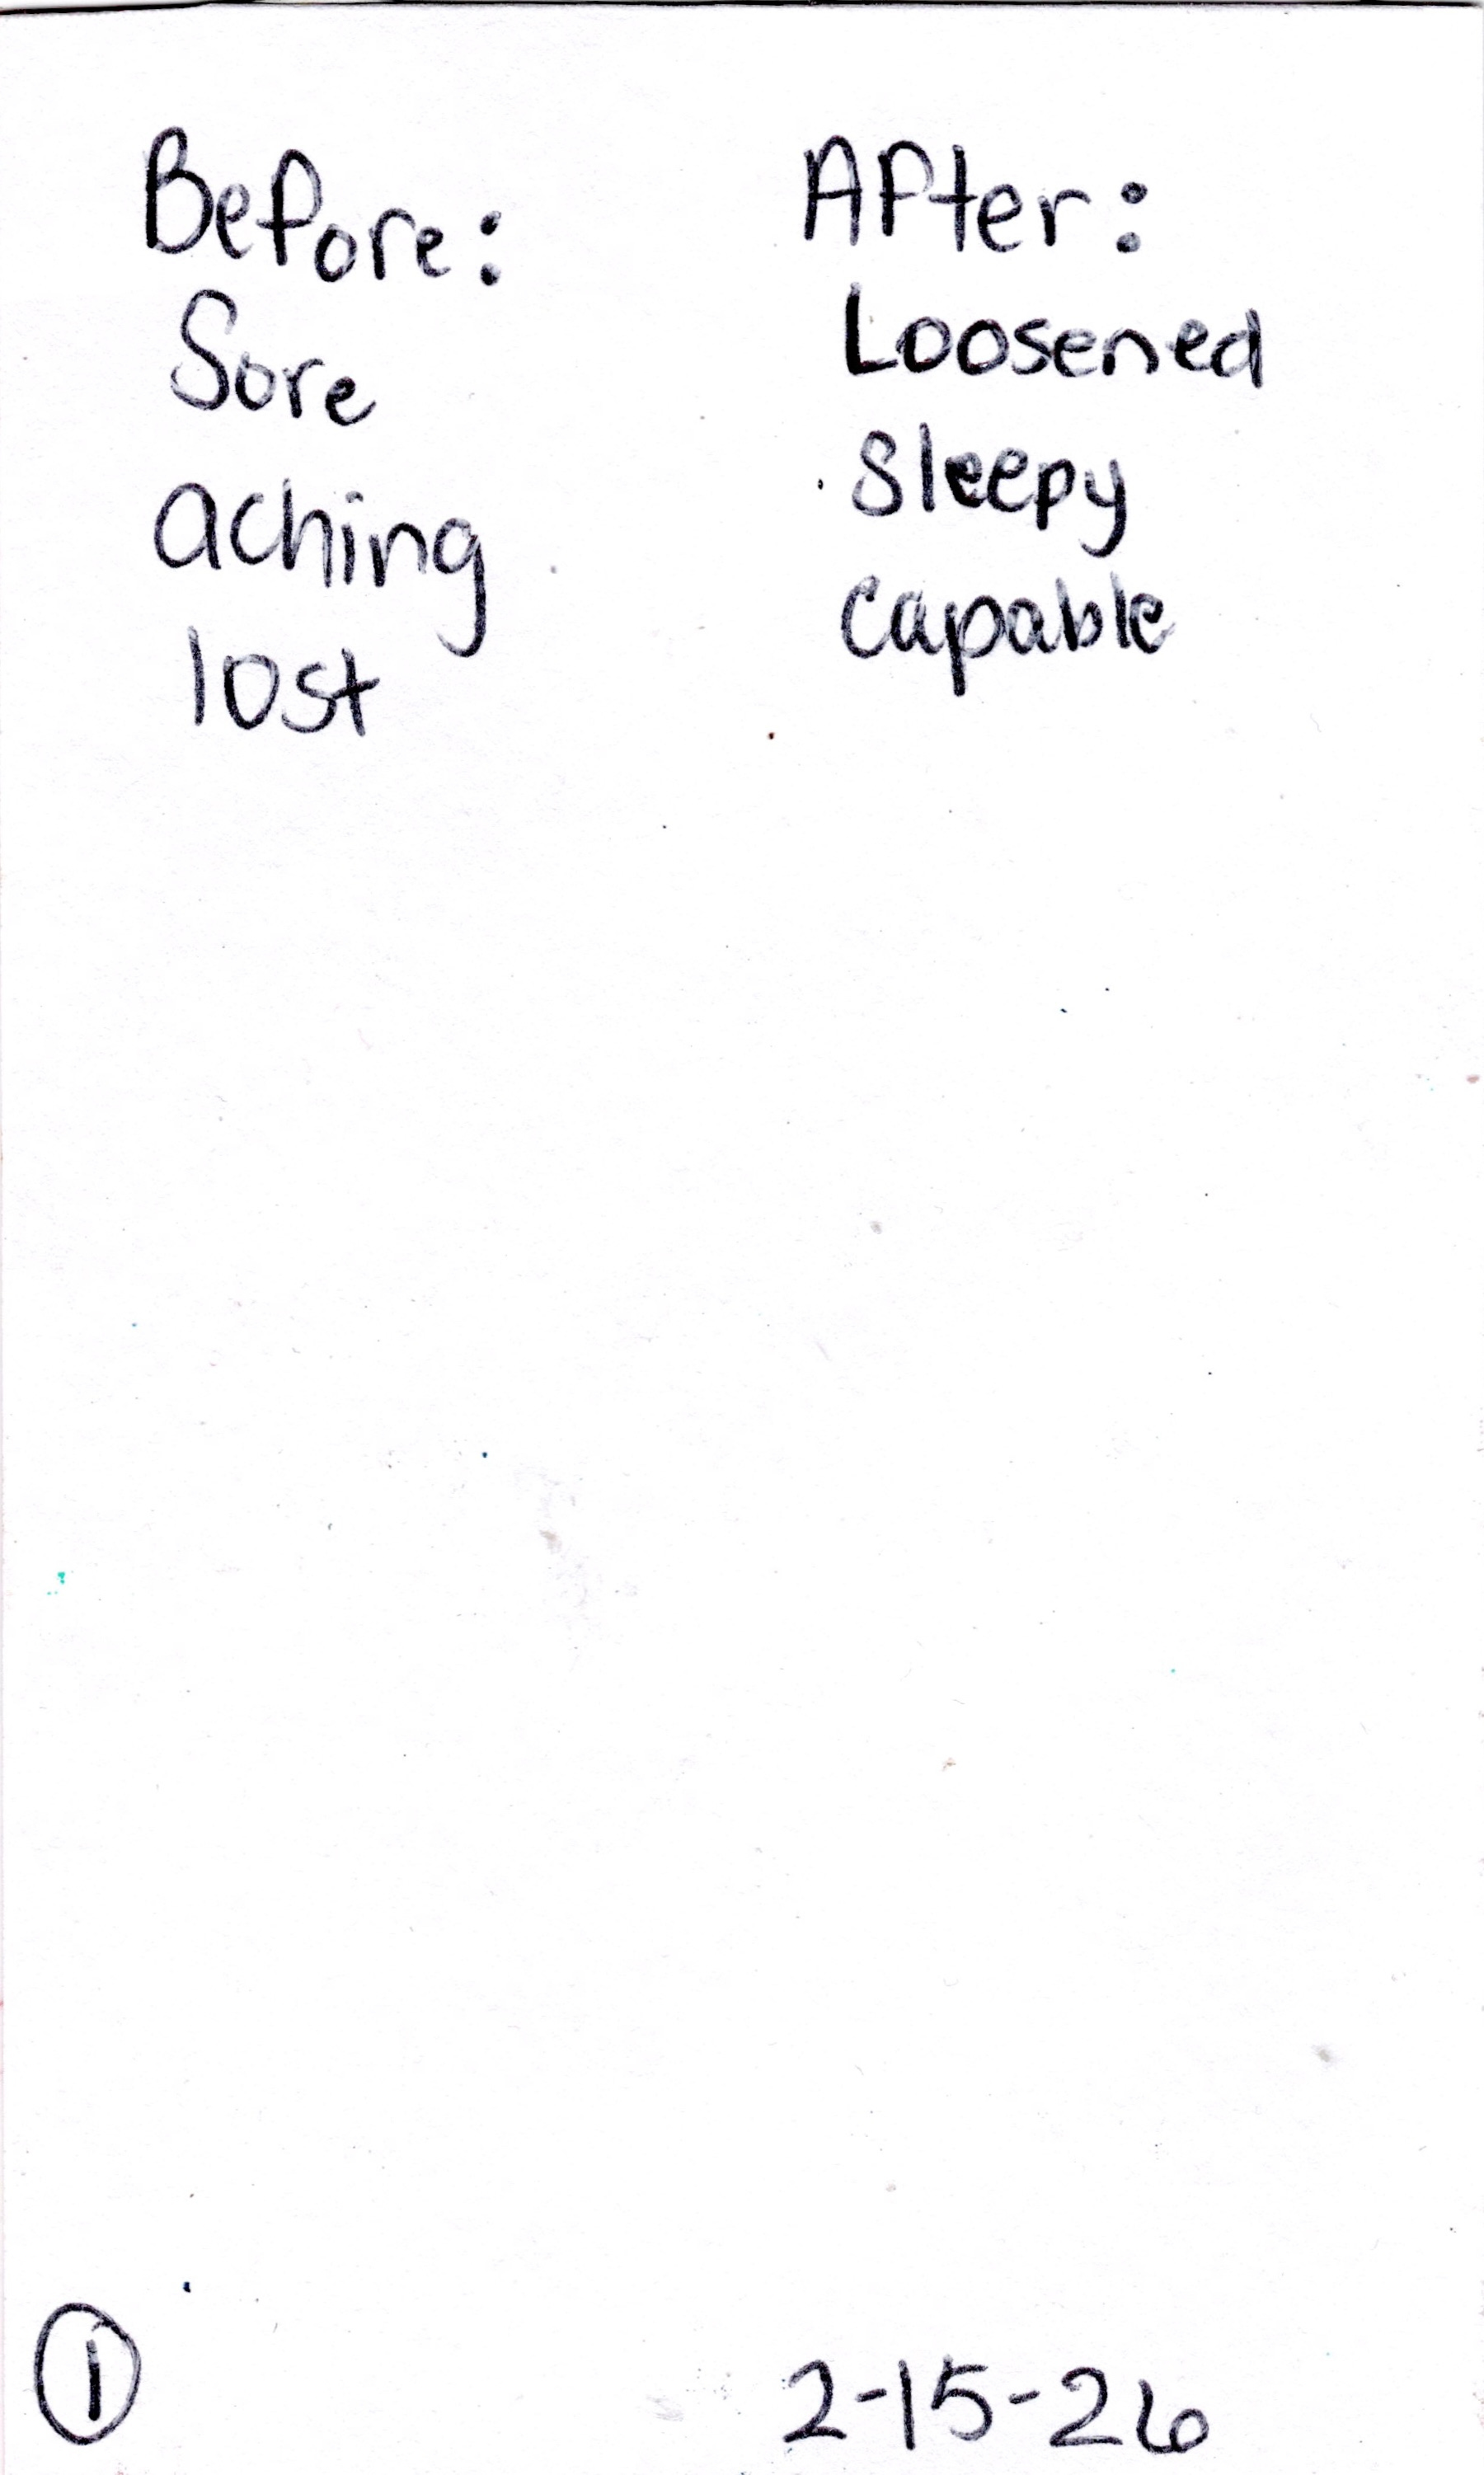 Before:
Sore
aching
lost
After:
Loosened
Sleepy
capable
1
2-15-26